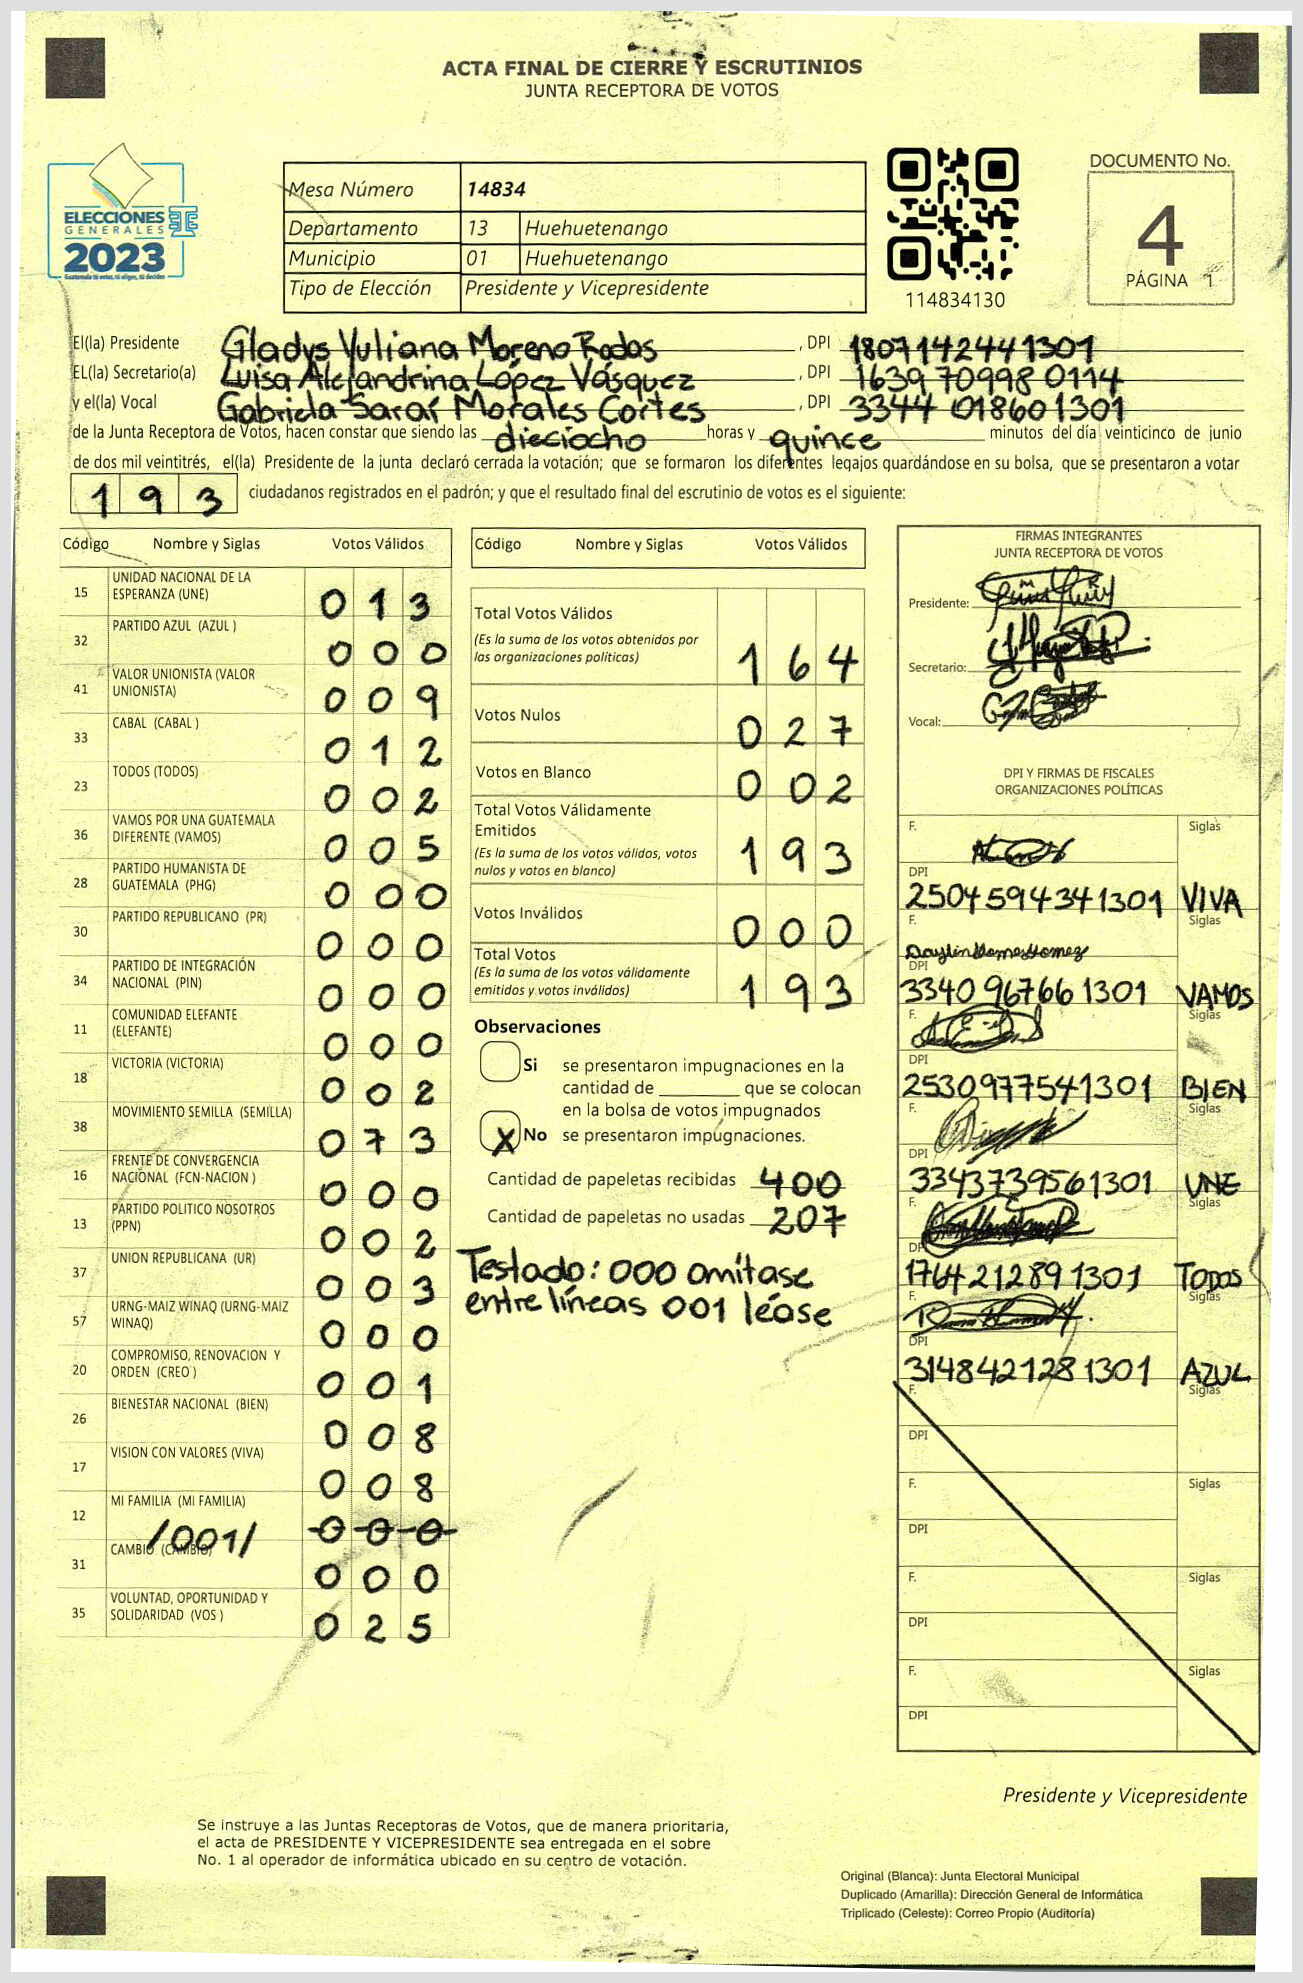 ACTA FINAL DE CIERRE Y ESCRUTINIOS
JUNTA RECEPTORA DE VOTOS
ELECCIONES
GENERALES
2023
Guatemala tú votas, tú eliges, tú decides
Mesa Número 14834
Departamento 13 Huehuetenango
Municipio 01 Huehuetenango
Tipo de Elección Presidente y Vicepresidente
114834130
DOCUMENTO No.
4
PÁGINA 1
El(la) Presidente Gladys Yuliana Moreno Rodas, DPI 1807142441301
EL(la) Secretario(a) Luisa Alejandrina López Vásquez, DPI 1639 70998 0114
y el(la) Vocal Gabriela Saraí Morales Cortes, DPI 3344 018601301
de la Junta Receptora de Votos, hacen constar que siendo las dieciocho horas y quince minutos del día veinticinco de junio
de dos mil veintitrés, el(la) Presidente de la junta declaró cerrada la votación; que se formaron los diferentes legajos guardándose en su bolsa, que se presentaron a votar
193 ciudadanos registrados en el padrón; y que el resultado final del escrutinio de votos es el siguiente:
Código Nombre y Siglas Votos Válidos
15 UNIDAD NACIONAL DE LA ESPERANZA (UNE) 013
32 PARTIDO AZUL (AZUL ) 000
41 VALOR UNIONISTA (VALOR UNIONISTA) 009
33 CABAL (CABAL ) 012
23 TODOS (TODOS) 002
36 VAMOS POR UNA GUATEMALA DIFERENTE (VAMOS) 005
28 PARTIDO HUMANISTA DE GUATEMALA (PHG) 000
30 PARTIDO REPUBLICANO (PR) 000
34 PARTIDO DE INTEGRACIÓN NACIONAL (PIN) 000
11 COMUNIDAD ELEFANTE (ELEFANTE) 000
18 VICTORIA (VICTORIA) 002
38 MOVIMIENTO SEMILLA (SEMILLA) 073
16 FRENTE DE CONVERGENCIA NACIONAL (FCN-NACION ) 000
13 PARTIDO POLITICO NOSOTROS (PPN) 002
37 UNION REPUBLICANA (UR) 003
57 URNG-MAIZ WINAQ (URNG-MAIZ WINAQ) 000
20 COMPROMISO, RENOVACION Y ORDEN (CREO ) 001
26 BIENESTAR NACIONAL (BIEN) 008
17 VISION CON VALORES (VIVA) 008
12 MI FAMILIA (MI FAMILIA) 000
/001/
31 CAMBIO (CAMBIO) 000
35 VOLUNTAD, OPORTUNIDAD Y SOLIDARIDAD (VOS ) 025
Código Nombre y Siglas Votos Válidos
Total Votos Válidos
(Es la suma de los votos obtenidos por
las organizaciones políticas) 164
Votos Nulos 027
Votos en Blanco 002
Total Votos Válidamente
Emitidos
(Es la suma de los votos válidos, votos
nulos y votos en blanco) 193
Votos Inválidos 000
Total Votos
(Es la suma de los votos válidamente
emitidos y votos inválidos) 193
Observaciones
Si se presentaron impugnaciones en la
cantidad de ________ que se colocan
en la bolsa de votos impugnados
X No se presentaron impugnaciones.
Cantidad de papeletas recibidas 400
Cantidad de papeletas no usadas 207
Testado: 000 omítase
entre líneas 001 léase
FIRMAS INTEGRANTES
JUNTA RECEPTORA DE VOTOS
Presidente:
Secretario:
Vocal:
DPI Y FIRMAS DE FISCALES
ORGANIZACIONES POLÍTICAS
F. Siglas
DPI
2504594341301 VIVA
F. Siglas
DPI
3340 96766 1301 VAMOS
F. Siglas
DPI
2530977541301 BIEN
F. Siglas
DPI
3343739561301 UNE
F. Siglas
DPI
1764212891301 TODOS
F. Siglas
DPI
3148421281301 AZUL
F. Siglas
DPI
F. Siglas
DPI
F. Siglas
DPI
F. Siglas
DPI
Presidente y Vicepresidente
Se instruye a las Juntas Receptoras de Votos, que de manera prioritaria,
el acta de PRESIDENTE Y VICEPRESIDENTE sea entregada en el sobre
No. 1 al operador de informática ubicado en su centro de votación.
Original (Blanca): Junta Electoral Municipal
Duplicado (Amarilla): Dirección General de Informática
Triplicado (Celeste): Correo Propio (Auditoría)